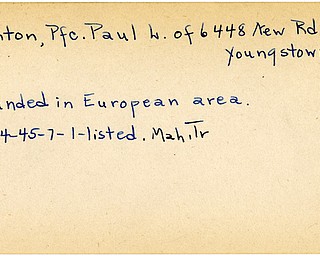 nton, Pfc. Paul L. of 6448 New Rd
Youngstow
unded in European area.
4-45-7-1-listed. Mah.Tr